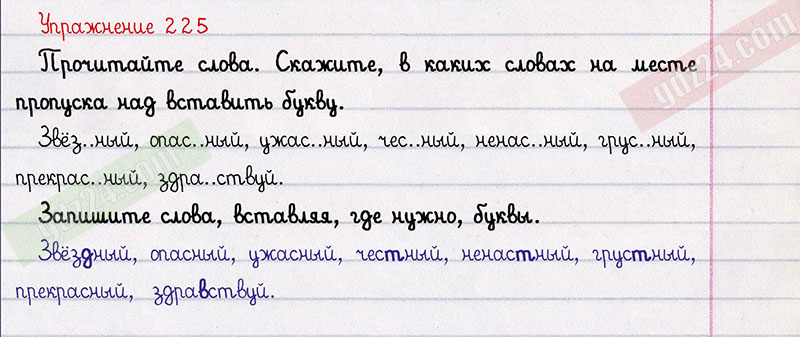 Упражнение 225
Прочитайте слова. Скажите, в каких словах на месте
пропуска над вставить букву.
Звёз..ный, опас..ный, ужас..ный, чес..ный, ненас..ный, грус..ный,
прекрас..ный, здра..ствуй.
Запишите слова, вставляя, где нужно, буквы.
Звёздный, опасный, ужасный, честный, ненастный, грустный,
прекрасный, здравствуй.
gdz24.com
gdz24.com